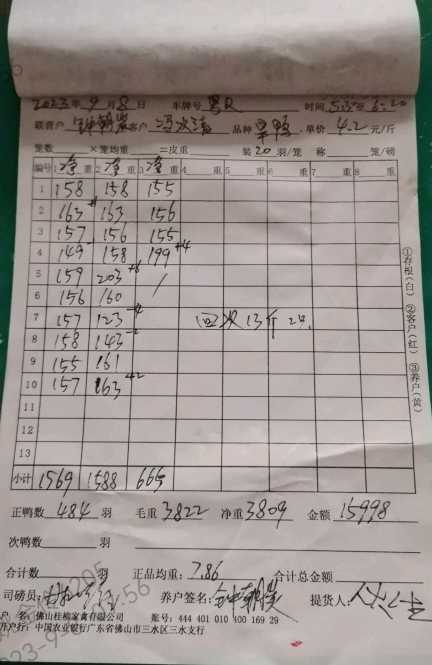 2023年9月8日 车牌号 粤R 时间 5:35至6:20
联营户 钟朝 客户 冯次清 品种 草鸭 单价 4.2 元/斤
笼数 ×笼均重 =皮重 装20羽/笼 称 笼/磅
编号 1净重 2净重 3净重 4 重 5 重 6 重 7 重 8 重
1 158 158 155
2 163 163 156
3 157 156 155
4 149 158 199+4
5 159 203 /
6 156 160
7 157 123 13斤
8 158 143
9 155 161
10 157 163
11
12
13
小计 1569 1588 665
正鸭数 484 羽 毛重 3822 净重 3809 金额 15998
次鸭数 羽
合计数 羽 正品均重: 7.86 合计总金额
司磅员: 养户签名: 提货人:
户 名: 佛山桂棉家禽有限公司 账号: 444 401 010 400 169 29
开户行: 中国农业银行广东省佛山市三水区三水支行
①存根(白) ②客户(红) ③养户(黄)